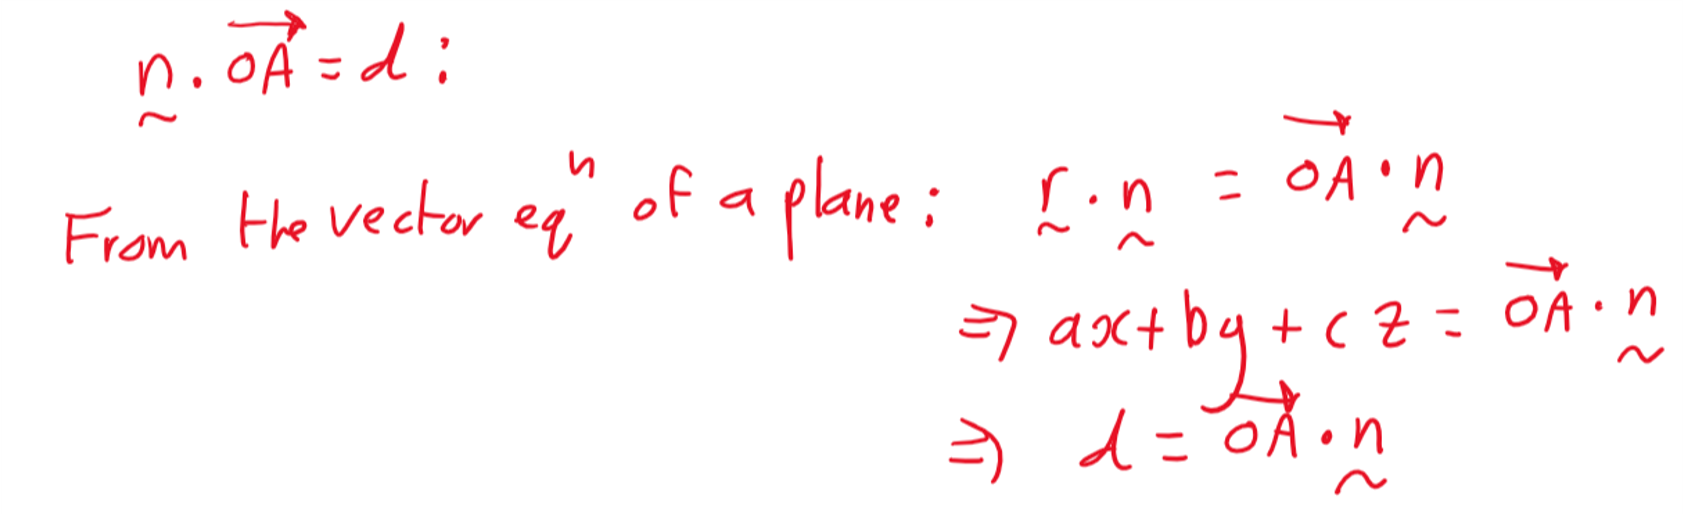 n . OA = d :
From the vector eqⁿ of a plane : r . n = OA . n
⇒ ax + by + cz = OA . n
⇒ d = OA . n